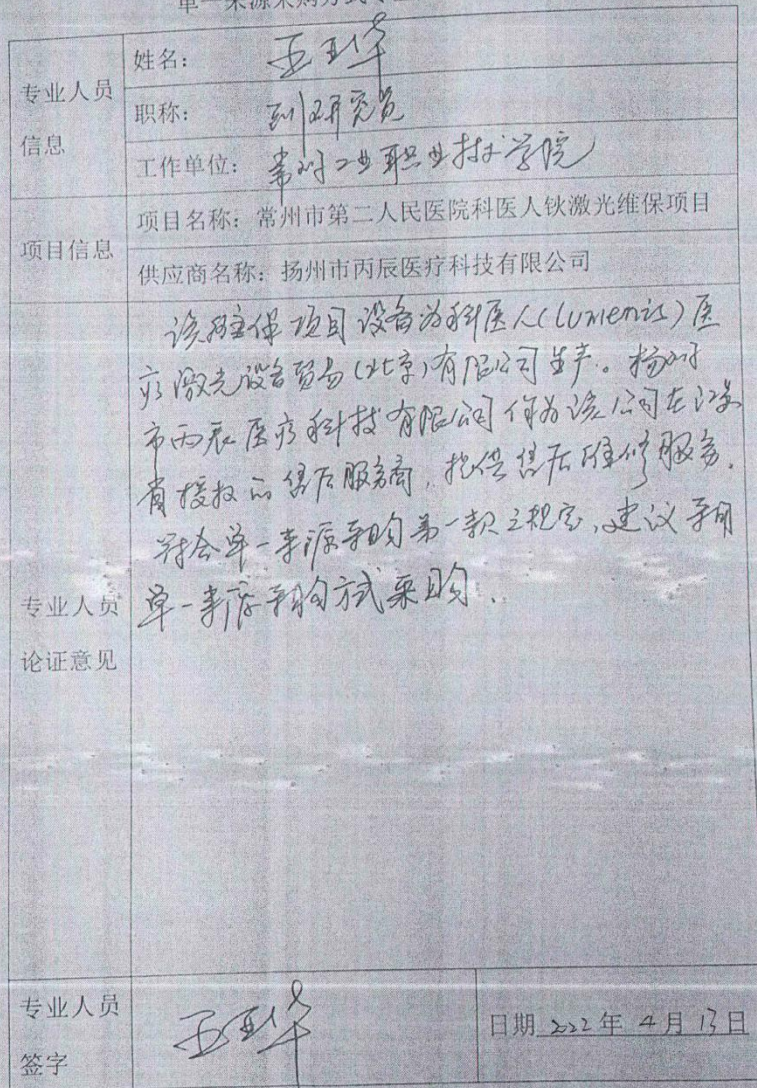 单一来源采购方式专
专业人员
信息
姓名：
职称： 副研究员
工作单位： 常州工业职业技术学院
项目信息
项目名称：常州市第二人民医院科医人钬激光维保项目
供应商名称：扬州市丙辰医疗科技有限公司
专业人员
论证意见
该维保项目设备为科医人(lumenis)医
疗激光设备贸易(北京)有限公司生产。扬州
市丙辰医疗科技有限公司作为该公司在江苏
省授权的售后服务商，提供售后维修服务。
符合单一来源采购第一款之规定，建议采用
单一来源采购方式采购.
专业人员
签字
日期 2022年 4月 13日